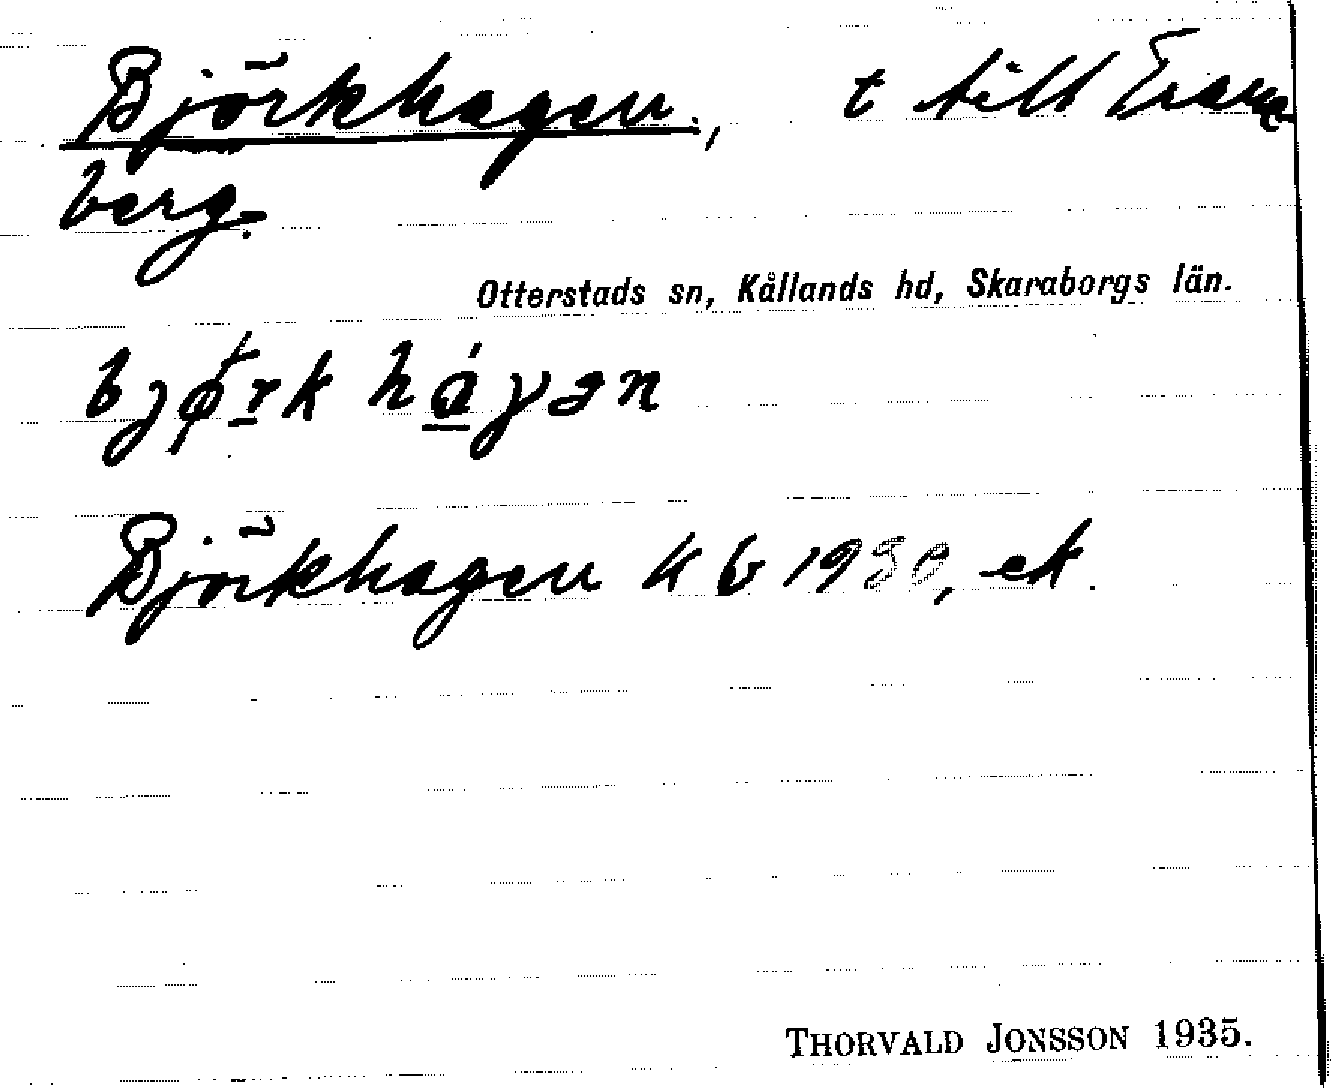 Björkhagen, t till Erams
berg.
Otterstads sn, Kållands hd, Skaraborgs län.
bjø̀rk hágən
Björkhagen Kb 1930, ek.
THORVALD JONSSON 1935.